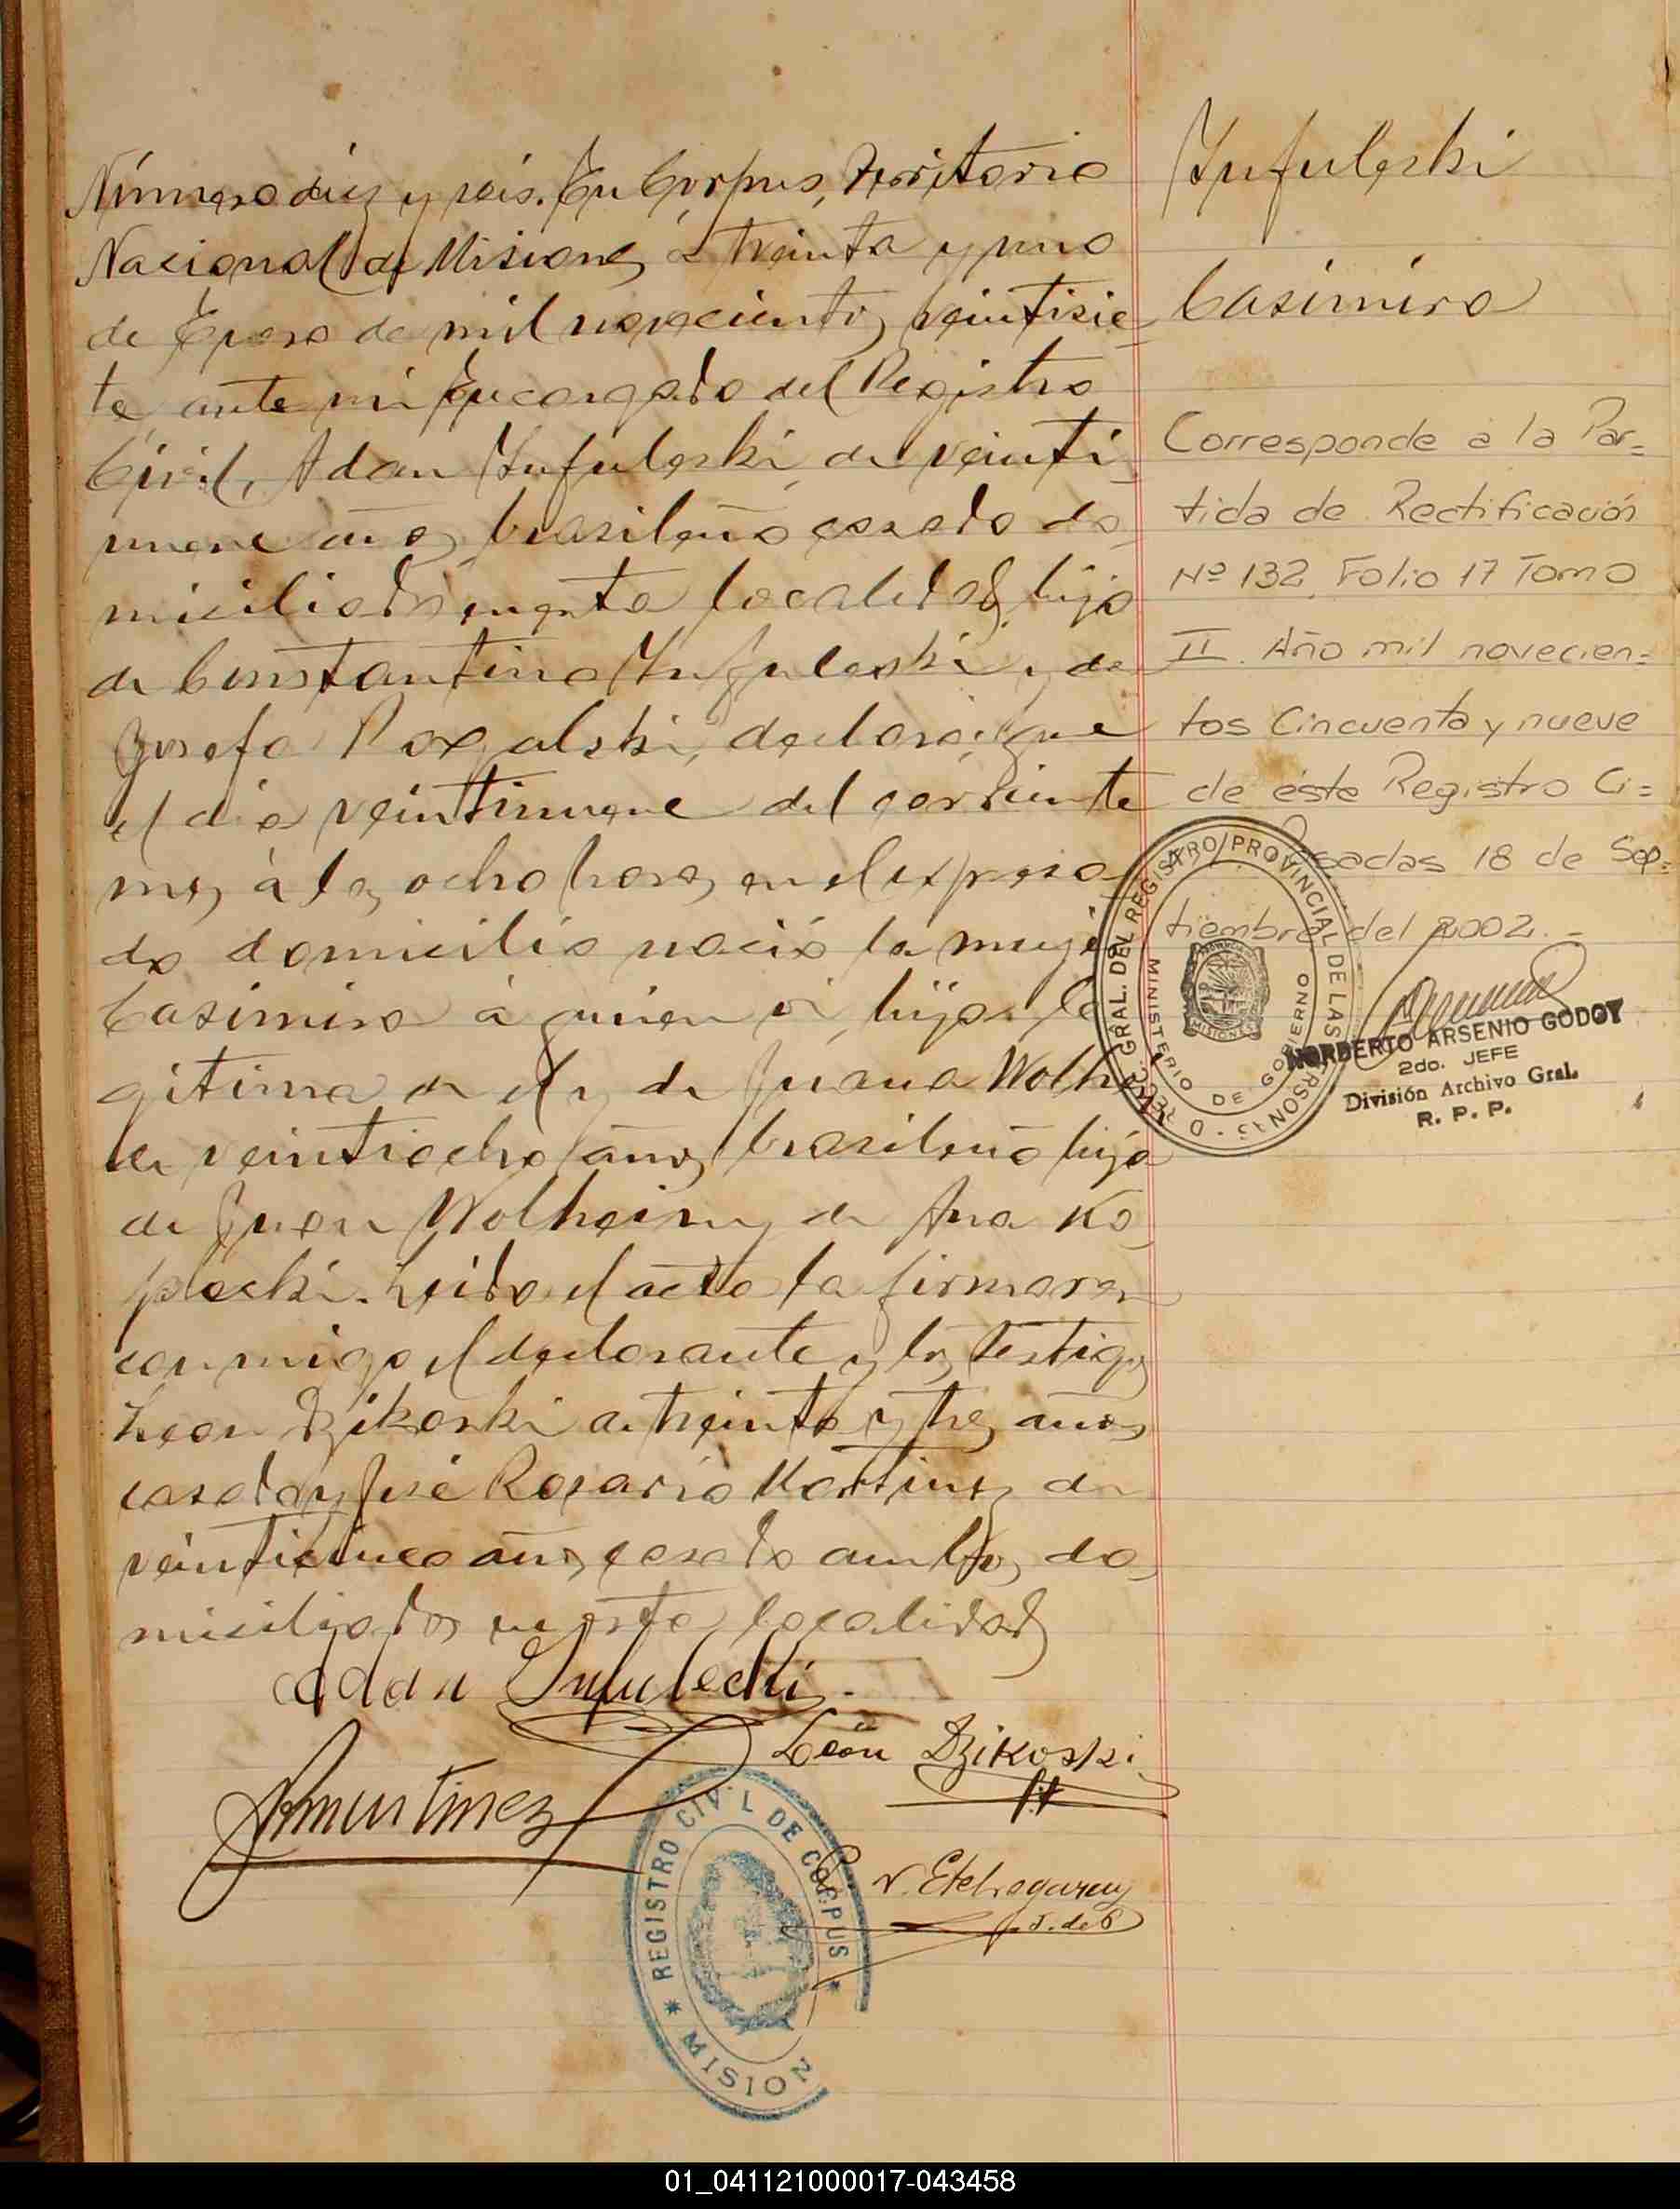 Número diez y seis. En Corpus, Territorio
Nacional de Misiones, a treinta y uno
de Enero de mil novecientos veintisie
te, ante mi Encargado del Registro
Civil, Adan Yufuleski, de veinti
nueve años, brasileño casado do
miciliado en esta localidad, hijo
de Constantino Yufuleski y de
Josefa declaró: que
el dia veintinueve del corriente
mes, á las ocho horas, en el expresa
do domicilio nació la mujer
Casimira á quien vi, hija le
gitima de el y de Juana Wolhein
de veintiocho años, brasileña hija
de Juan Wolheim y de Ana Ko
placki. Leida el acta la firmaron
conmigo el declarante y los testigos
Leon Dzikoski de treinta y tres años,
casado y José Rosario Martinez de
veinticinco años, casado ambos do
miciliados en esta localidad
Adan Yufulecki.
León Dzikoski
Martinez
V. Etchegaray
J. de P
REGISTRO CIVIL DE CORPUS
* MISION
Yufuleski
Casimira
Corresponde a la Par=
tida de Rectificación
Nº 132, Folio 17 Tomo
II. Año mil novecien=
tos Cincuenta y nueve
de éste Registro Ci=
Posadas 18 de Sep=
tiembre del 2002.-
GRAL. DEL REGISTRO PROVINCIAL DE LAS PERSONAS
MINISTERIO DE GOBIERNO
MISIONES
NORBERTO ARSENIO GODOY
2do. JEFE
División Archivo Gral.
R. P. P.
01_041121000017-043458